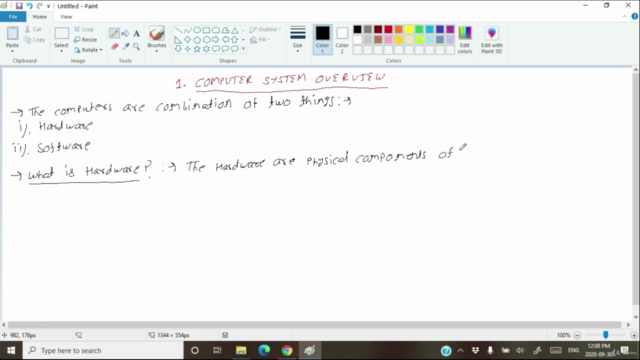 Untitled - Paint
File
Home
View
Paste
Cut
Copy
Clipboard
Select
Crop
Resize
Rotate
Image
Tools
Brushes
Shapes
Outline
Fill
Size
Color 1
Color 2
Colors
Edit colors
Edit with Paint 3D
1. COMPUTER SYSTEM OVERVIEW
→ The computers are combination of two things :→
i), Hardware
ii), Software
→ What is Hardware? :→ The Hardware are physical components of
982, 176px
1344 × 554px
100%
Type here to search
ENG
12:08 PM
2020-09-30